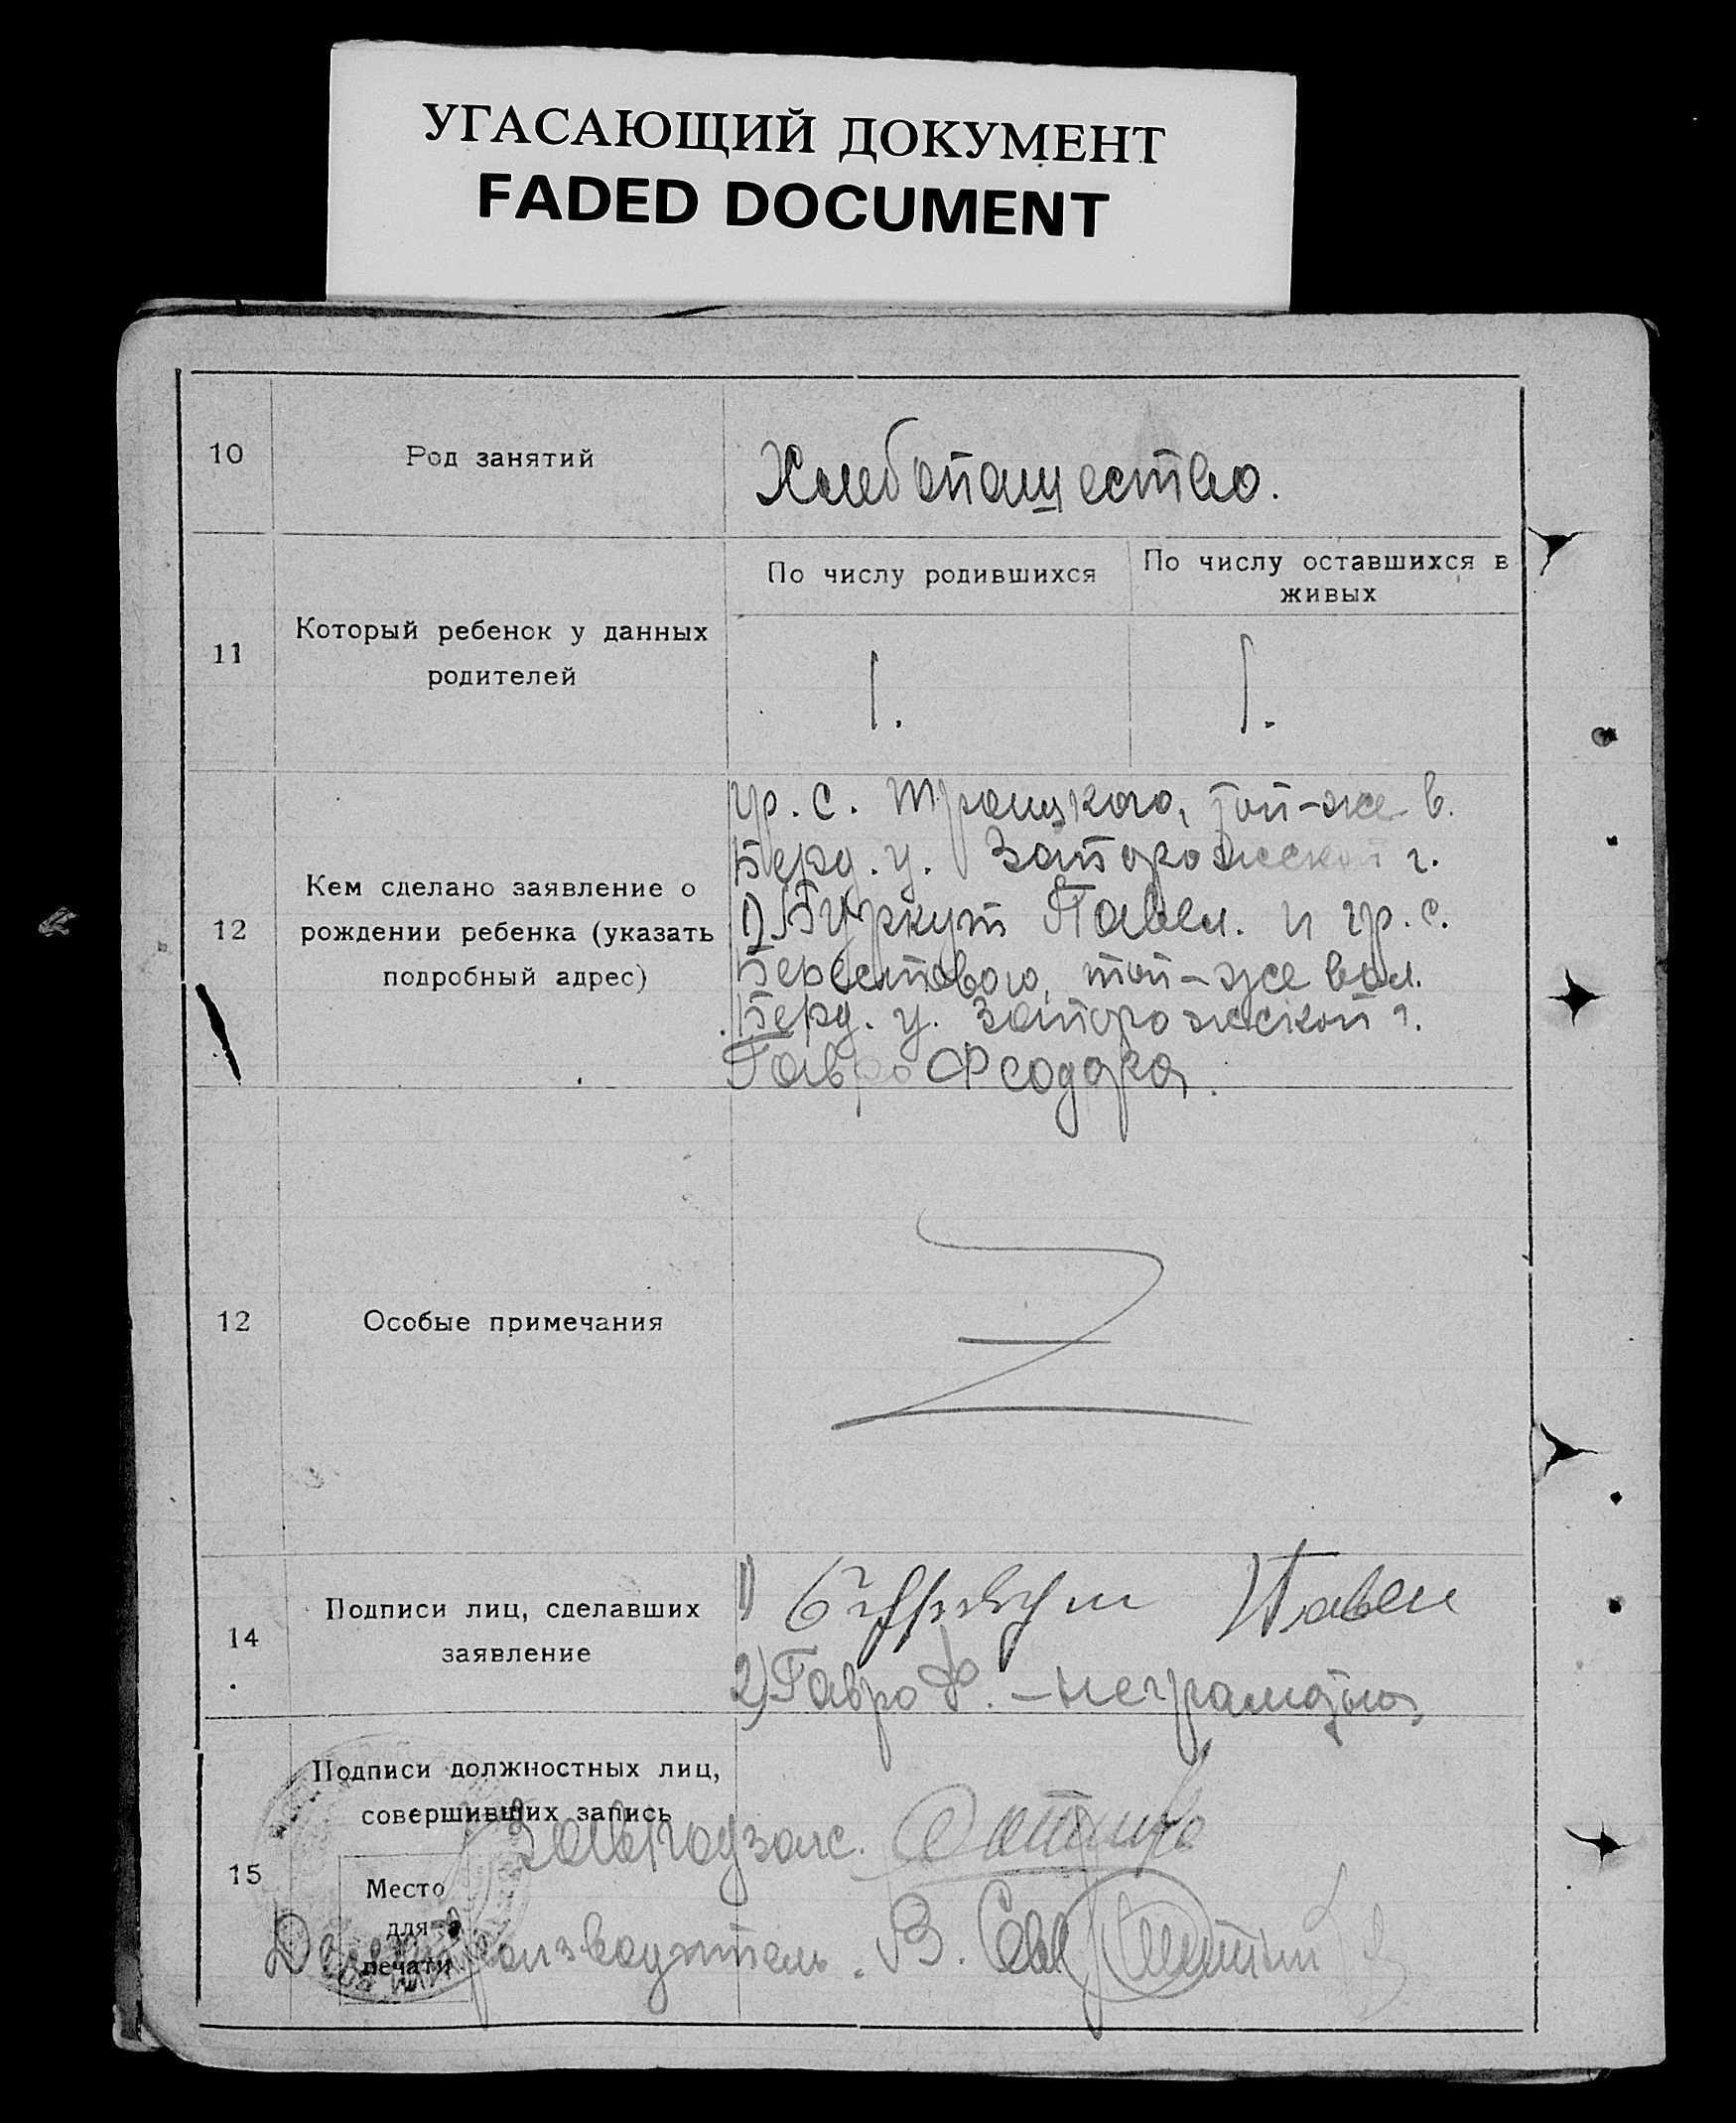 УГАСАЮЩИЙ ДОКУМЕНТ
FADED DOCUMENT
10
Род занятий
Хлебопащество.
11
Который ребенок у данных
родителей
По числу родившихся
1.
По числу оставшихся в
живых
1.
12
Кем сделано заявление о
рождении ребенка (указать
подробный адрес)
гр. с. Троицкого, той-же в.
Берд. у. Запорожской г.
1) Буркут Павел. и гр. с.
Берестового, той-же вол.
Берд. у. Запорожской г.
Гавро Феодора.
12
Особые примечания
14
Подписи лиц, сделавших
заявление
1) Буркут Павел
2) Гавро Ф. - неграмотна
15
Подписи должностных лиц,
совершивших запись
Завподзагс.
Место
для
печати
Делопроизводитель. В.